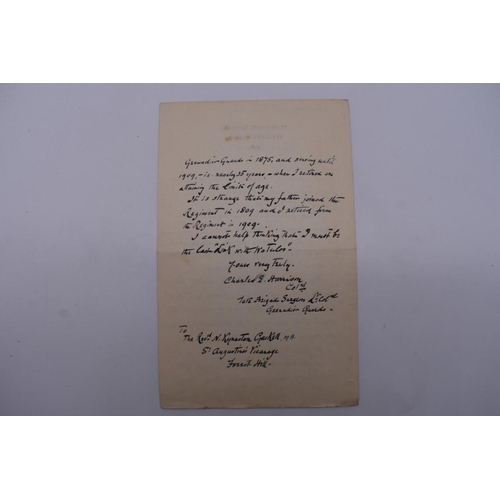 Grenadier Guards in 1875, and serving until
1909, - is nearly 35 years - when I retired on
attaining the limits of age.
It is strange that my father joined the
Regiment in 1809 and I retired from
the Regiment in 1909 -
I cannot help thinking that I must be
the last "Link with Waterloo"
Yours very truly -
Charles E. Harrison
Colˡ
Late Brigade Surgeon Lᵗ Colˡ
Grenadier Guards -
To
The Revᵈ N. Kynaston Gaskell,
Sᵗ Augustine's Vicarage
Forest Hill -